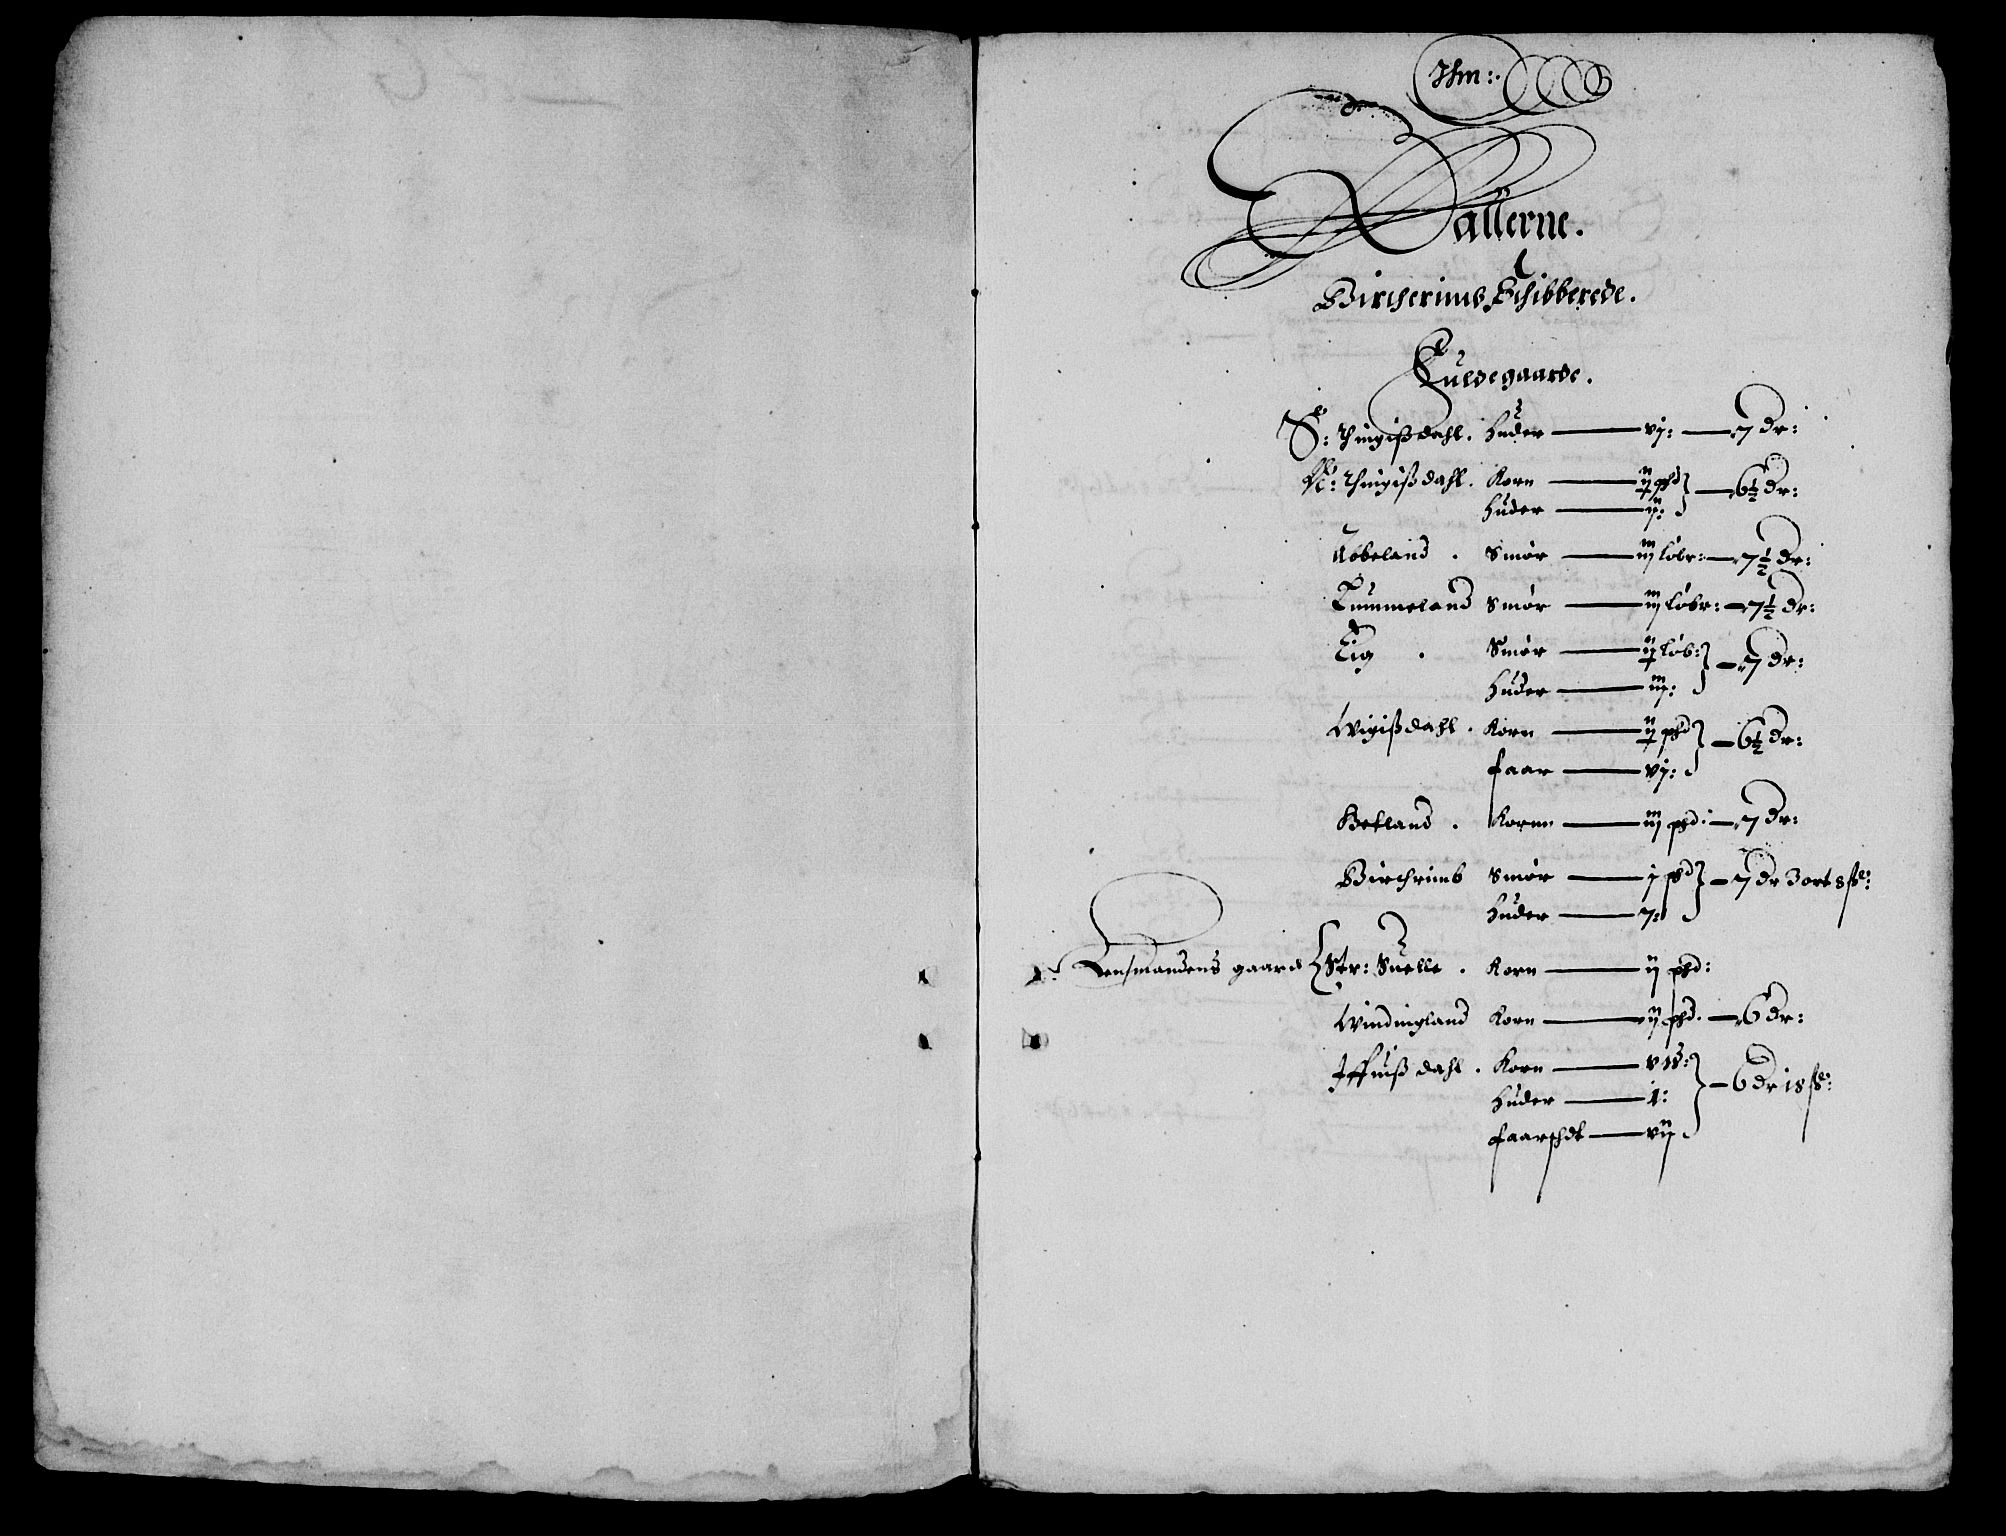 Ihm:
Dallerne.
Bircherims Schibberede.
Fuldegaarde.
S: Thingißdahl. Huder — vj: — 7 dr:
N: Thingißdahl. Korn — ij phd — 6½ dr:
Huder — ij:
Aabeland. Smør — iij løbr: — 7½ dr:
Tummeland Smør — iij løbr: — 7½ dr:
Eig. Smør — ij løb: — 7 dr:
Huder — iij:
Wigißdahl. Korn — ij phd — 6½ dr:
Faar — vj:
Betland. Kornn — iij phd: — 7 dr:
Birchrimb Smør — j phd — 7 dr 3 ort 8 ß:
Huder — j:
Lensmandens gaard Str: Suelle. Korn — ij phd:
Windingland Korn — iij phd. — 6 dr:
Iffuißdahl. Korn — — 6 dr 18 ß:
Huder — 1:
Faarschdt — vij